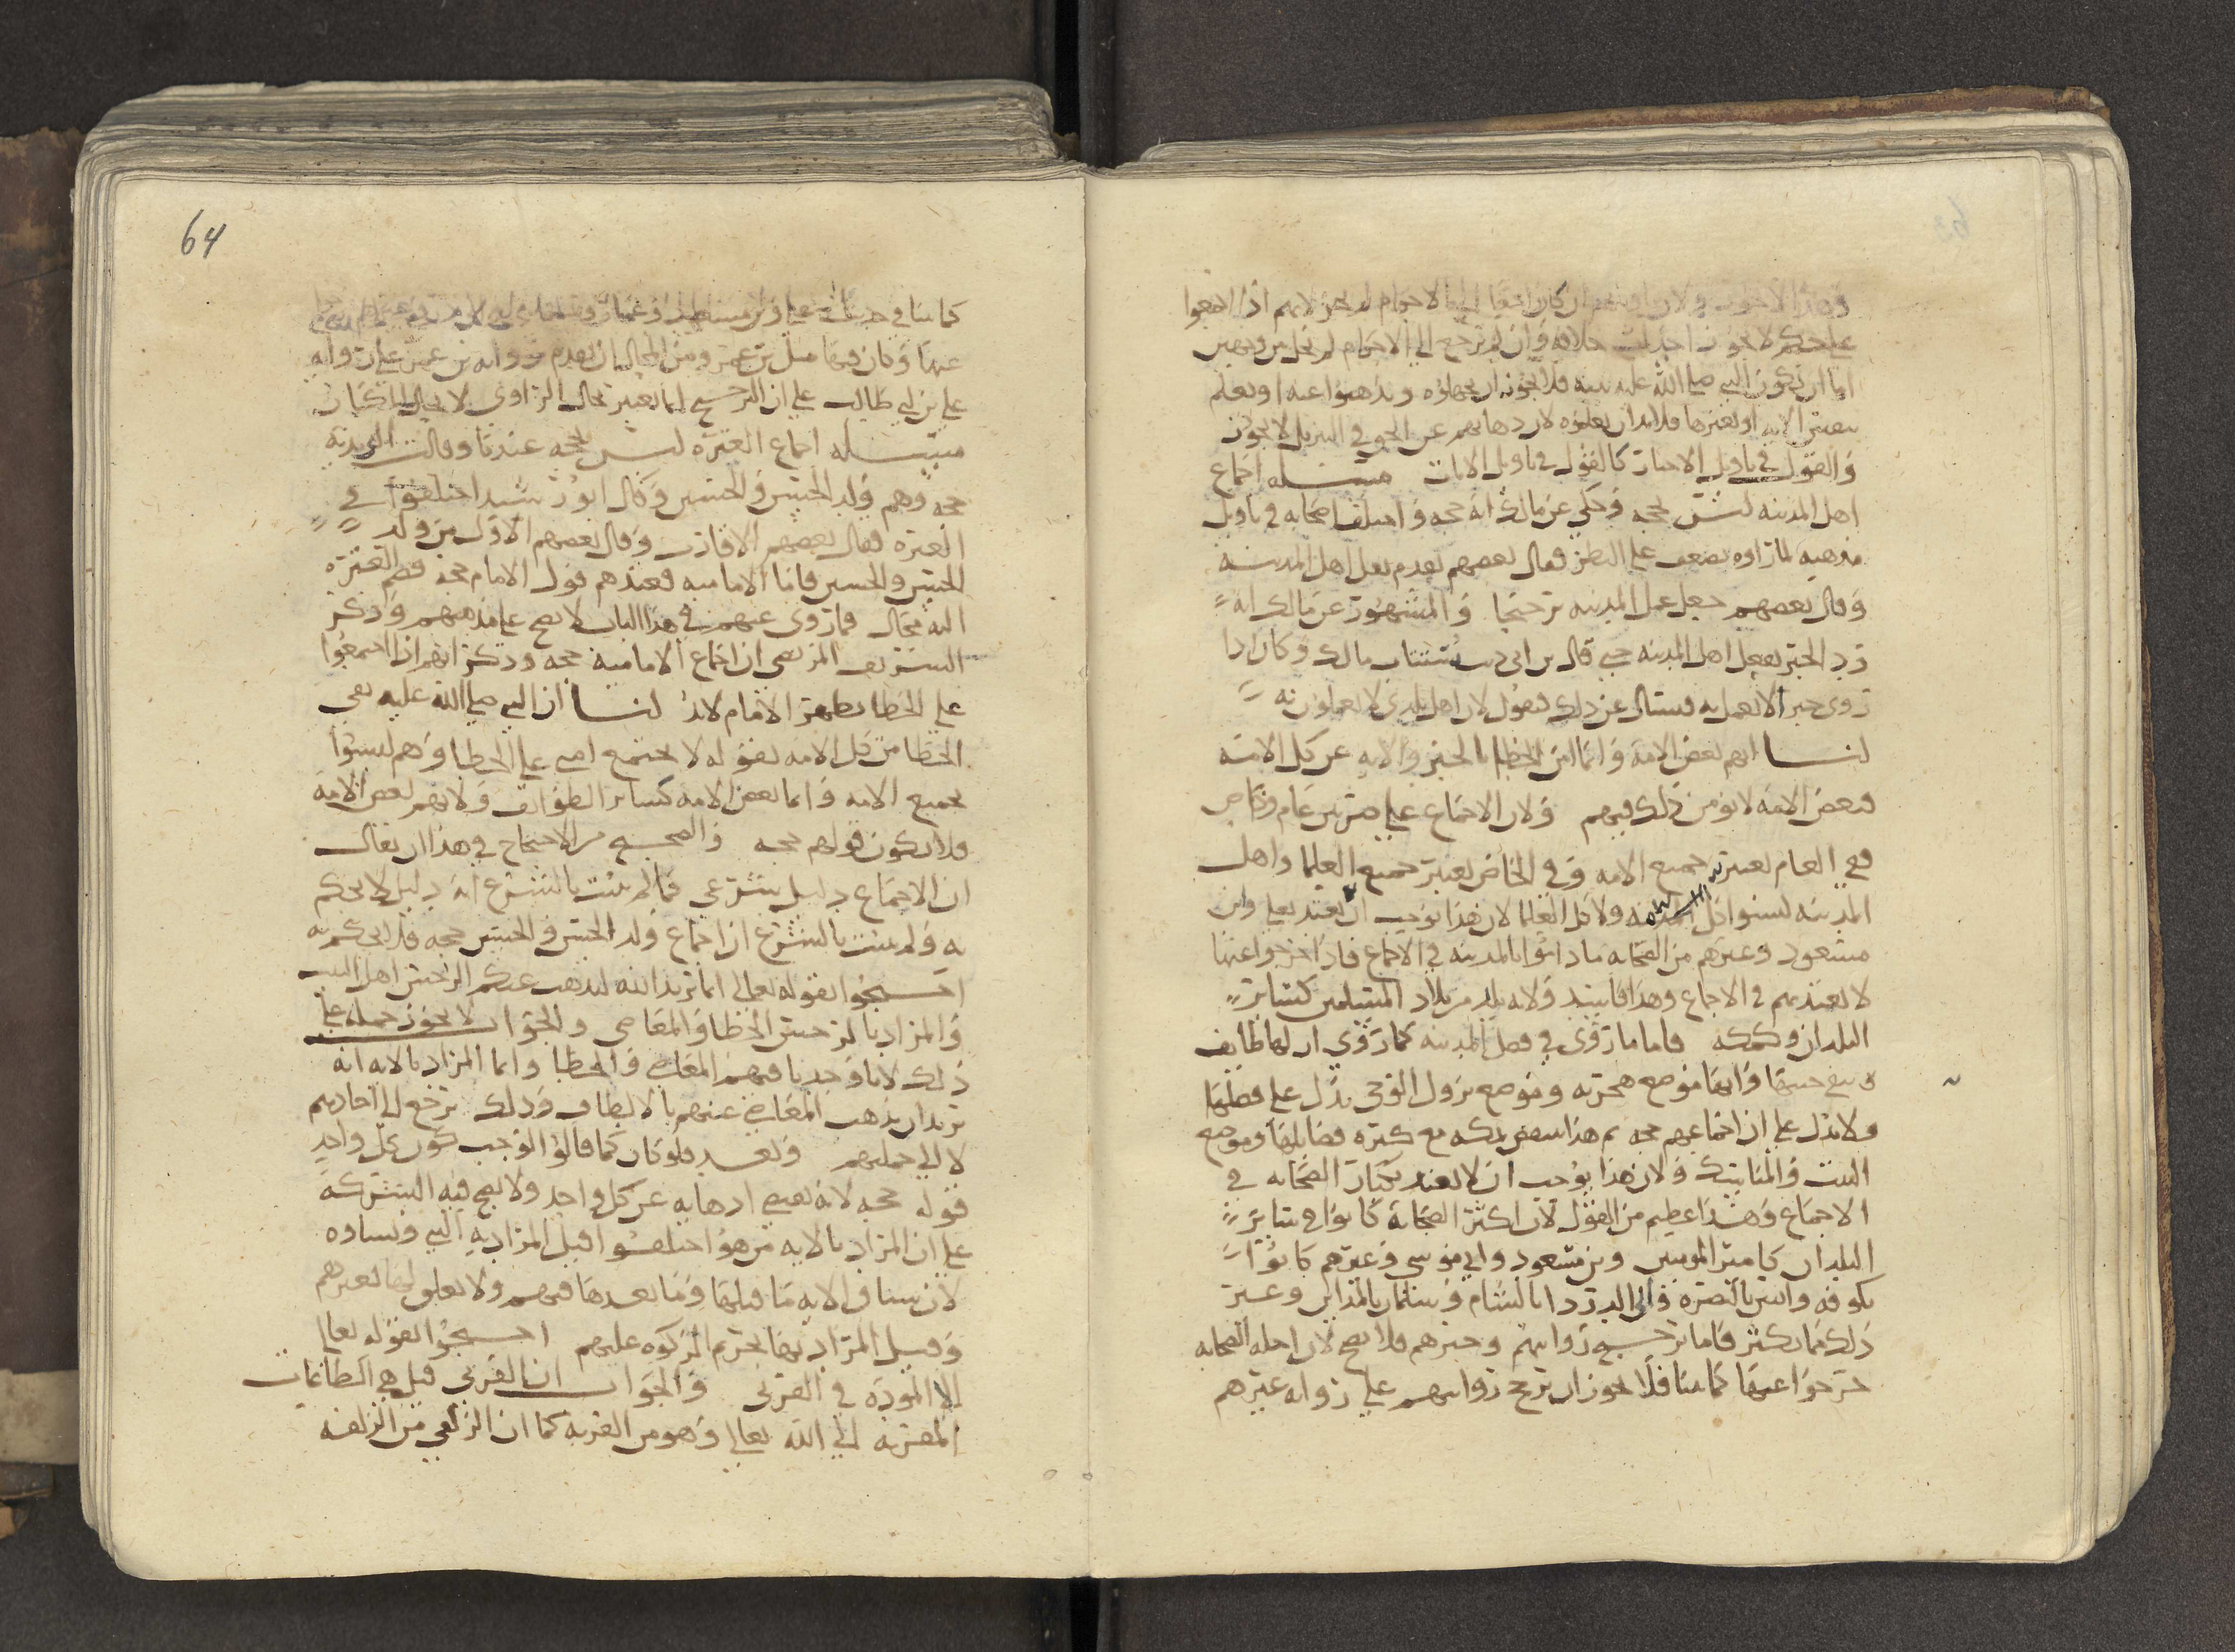 على حكم لا يجوز احداث خلافه وان لم يرجع الى الاحرام لم يخل من وجهين
اما ان يكون النبي صلى الله عليه بينه فلا يجوز ان يجهلوه ويذهبوا عنه او يعلم
بتفسير الايه او بغيرها فلا بد ان يعلموه لان ذهابهم عن الحق في التنزيل لا يجوز
والقول في تاويل الاخبار كالقول في تاويل الايات مسئله اجماع
اهل المدينه ليس بحجه وحكي عن مالك انه حجه واختلف اصحابه في تاويل
مذهبه لما راوه يضعف على النظر فقال بعضهم يقدم نقل اهل المدينه
وقال بعضهم جعل عمل المدينه ترجيحا والمشهور عن مالك انه
رد الخبر بفعل اهل المدينه حتى قال بن ابي ذيب يستتاب مالك وكان اذا
روى خبرا لا يعمل به فسئل عن ذلك فيقول لان اهل بلدي لا يعملون به
لنا انهم بعض الامه وانما امن الخطا بالخبر والايه عن كل الامه
فبعض الامه لا يومن ذلك فيهم ولان الاجماع على ضربين عام وخاص
ففي العام يعتبر جميع الامه وفي الخاص يعتبر جميع العلما واهل
المدينه ليسوا كل الامه ولا كل العلما لان هذا يوجب ان يعتد بعلي وابن
مسعود وغيرهم من الصحابه ما داموا بالمدينه في الاجماع فاذا خرجوا عنها
لا يعتد بهم في الاجماع وهذا فاسد ولانه بلد من بلاد المسلمين كسائر
البلدان وكمكه فاما ما روي في فضل المدينه كما روي ان لها طايف
تنفي خبثها وانها موضع هجرته وموضع نزول الوحي يدل على فضلها
ولا يدل على ان اجماعهم حجه ثم هذا ينتقض بمكه مع كثره فضايلها وموضع
البيت والمناسك ولان هذا يوجب ان لا يعتد بكبار الصحابه في
الاجماع وهذا عظيم من القول لان اكثر الصحابه كانوا في سائر
البلدان كامير المومنين وبن مسعود وابي موسى وغيرهم كانوا
بكوفه وانس بالبصره وابي الدردا بالشام وسلمان بالمداين وغير
ذلك مما يكثر فاما ترجيح روايتهم وخبرهم فلا يصح لان اجله الصحابه
خرجوا عنها كما بينا فلا يجوز ان ترجح روايتهم على روايه غيرهم
64
كما بينا في
عنها وكان فيها مثل بن عمر ومن المحال ان يقدم روايه بن عمر على روايه
علي بن ابي طالب على ان الترجيح انما يعتبر بحال الراوي لا بحال المكان
مسئله اجماع العتره ليس بحجه عندنا وقالت الزيديه
حجه وهم ولد الحسن والحسين وقال ابو رشيد اختلفوا في
العتره فقال بعضهم الاقارب وقال بعضهم الاول من ولد
الحسن والحسين فاما الاماميه فعندهم قول الامام حجه فضم العتره
اليه محال فما روي عنهم في هذا الباب لا يصح على مذهبهم وذكر
الشريف المرتضى ان اجماع الاماميه حجه وذكر انهم اذا اجتمعوا
على الخطا يظهر الامام لابد لنا ان النبي صلى الله عليه نفى
الخطا من كل الامه بقوله لا يجتمع امتي على الخطا وهم ليسوا
بجميع الامه وانما بعض الامه كسائر الطوايف ولانهم بعض الامه
فلا يكون قولهم حجه والصحيح من الاحتجاج في هذا ان يقال
ان الاجماع دليل شرعي فما لم يثبت بالشرع انه دليل لا يحكم
به ولم يثبت بالشرع ان اجماع ولد الحسن والحسين حجه فلا يحكم به
احتجوا بقوله تعالى انما يريد الله ليذهب عنكم الرجس اهل البيت
والمراد بالرجس الخطا والمعاصي والجواب لا يجوز حمله على
ذلك لانا وجدنا فيهم المعاصي والخطا وانما المراد بالايه انه
يريد ان يذهب المعاصي عنهم بالالطاف وذلك يرجع الى احادهم
لا الى جملتهم وبعد فلو كان كما قالوا لوجب كون كل واحد
قوله حجه لانه يقتضي اذهابه عن كل واحد ولا يصح فيه الشركه
على ان المراد بالايه من هو اختلفوا فقيل المراد به النبي ونساوه
لان سياق الايه ما قبلها وما بعدها فيهم ولا تعلق لها بغيرهم
وقيل المراد بها تحريم الزكوه عليهم احتجوا بقوله تعالى
الا الموده في القربى والجواب ان القربى قيل هي الطاعات
المقربه الى الله تعالى وهو من القربه كما ان الزلفى من الزلفه